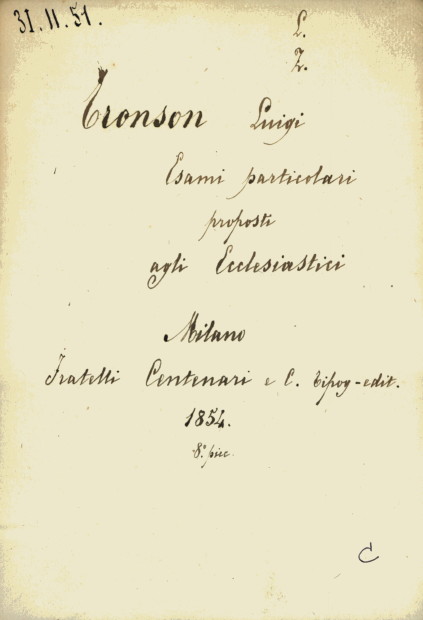 31.11.51.
L.
2.
Tronson Luigi
Esami particolari
proposti
agli Ecclesiastici
Milano
Fratelli Centenari e C. tipog-edit.
1854.
8.° picc.
C